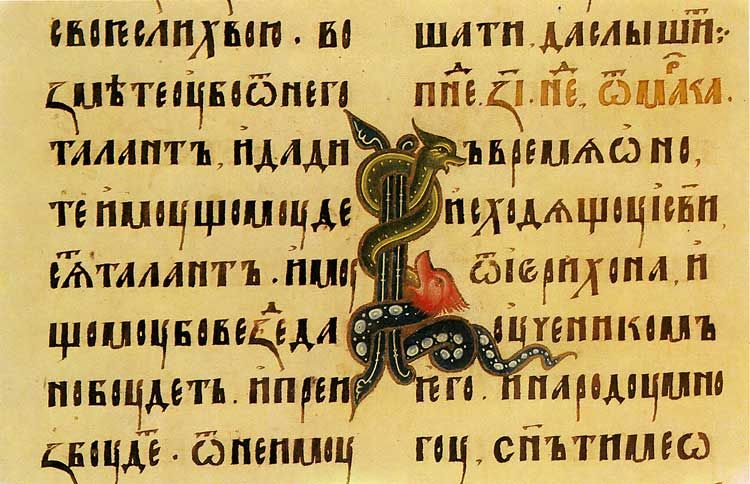 своѥ слихвою. во
змѣте оубо ѿ него
талантъ, и дади
те имоущомоу де
сѧⷮ талантъ. имоу
щомоу бо везⷣе да
но боудеть. и преи
збоудеⷮ. ѿ неимоу
шати, да слышиⷮ:
пнⷣе. з҃і. неⷣ, ѿ маⷬка.
ъ времѧ ѡно,
исходѧщоу іс҃ви
ѿ іерихона, и
оученикомъ
его. и народоу мно
гоу, сн҃ъ тимеѡ